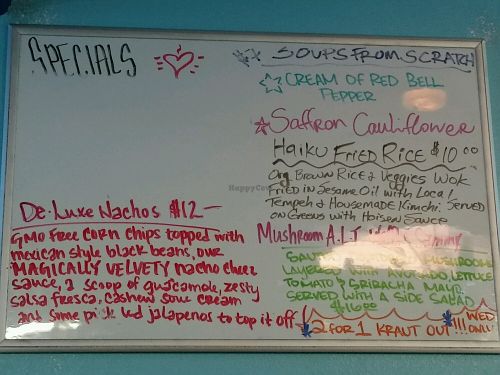 SPECIALS
SOUPS FROM SCRATCH
CREAM OF RED BELL
PEPPER
Saffron Cauliflower
Haiku Fried Rice $10.00
Org Brown Rice & Veggies Wok
Fried in Sesame Oil with Local
Tempeh & Housemade Kimchi. Served
on Greens with Hoisen Sauce
Mushroom A.L.T.
MUSHROOMS
LAYERED WITH AVOCADO LETTUCE
TOMATO & SRIRACHA MAYO
SERVED WITH A SIDE SALAD
$16.00
2 FOR 1 KRAUT OUT!!!
WED
ONLY
De-Luxe Nachos $12-
GMO Free Corn chips topped with
mexican style black beans, our
MAGICALLY VELVETY nacho cheez
sauce, a scoop of guacamole, zesty
salsa fresca, cashew sour cream
and some pickled jalapenos to top it off